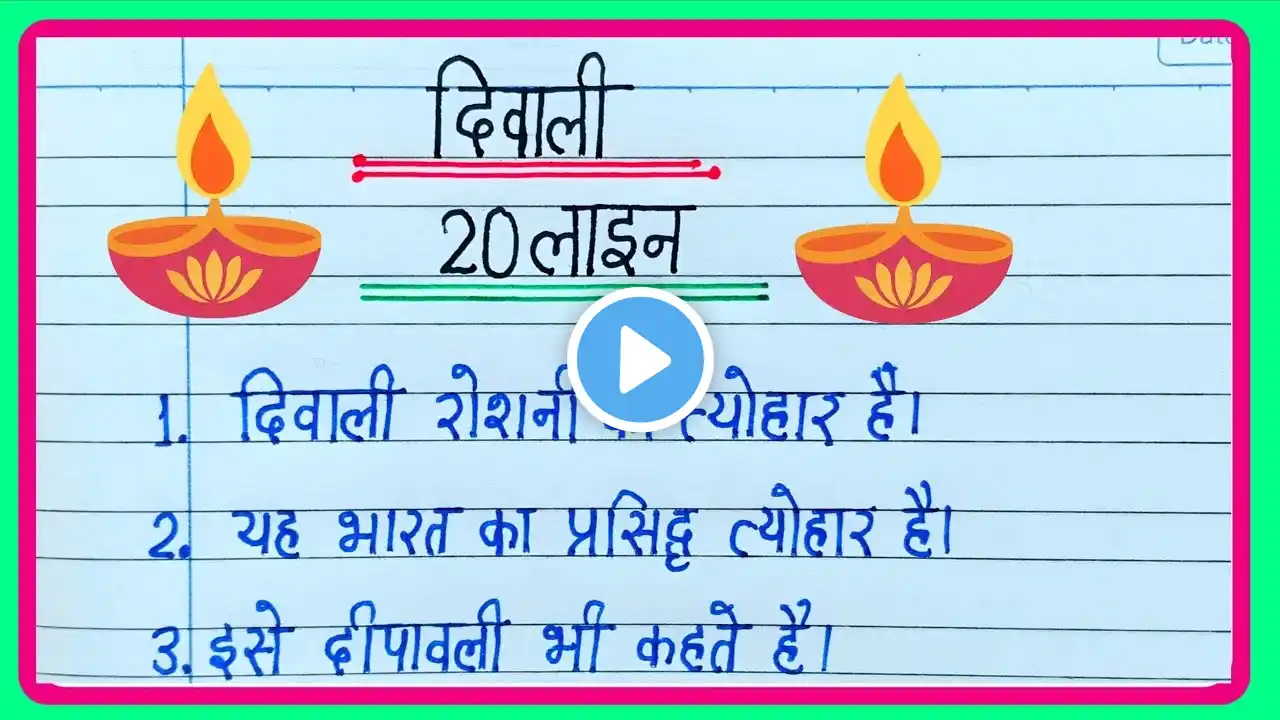 Date
दिवाली
20 लाइन
1. दिवाली रोशनी त्योहार है।
2. यह भारत का प्रसिद्ध त्योहार है।
3. इसे दीपावली भी कहते है।